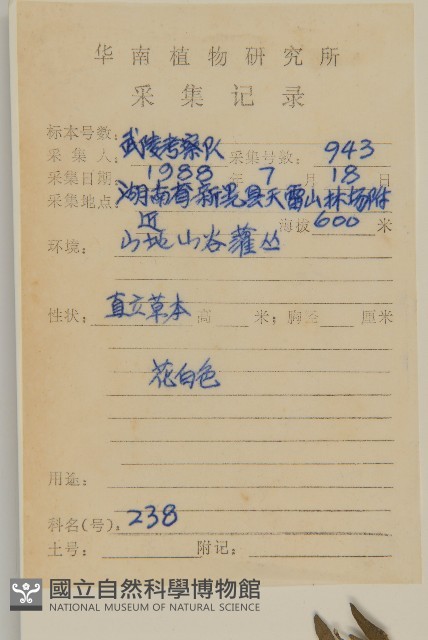 华南植物研究所
采集记录
标本号数:
采集人: 武陵考察队 采集号数: 943
采集日期: 1988 年 7 月 18 日
采集地点: 湖南省新晃县天雷山林场附
近 海拔 600 米
环境: 山地山谷灌丛
性状: 直立草本 高 米; 胸径 厘米
花白色
用途:
科名(号): 238
土号: 附记:
國立自然科學博物館
NATIONAL MUSEUM OF NATURAL SCIENCE